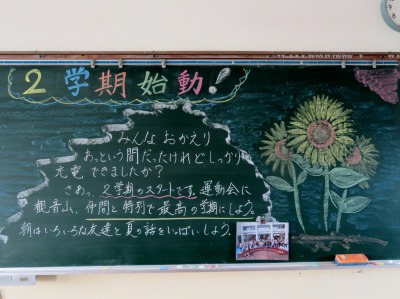 2学期始動!
みんな おかえり
あっという間だったけれどしっかり
充電できましたか?
さあっ、2学期のスタートです。運動会に
観音山、仲間と特別で最高の学期にしよう。
朝はいろいろな友達と夏の話をいっぱいしよう。